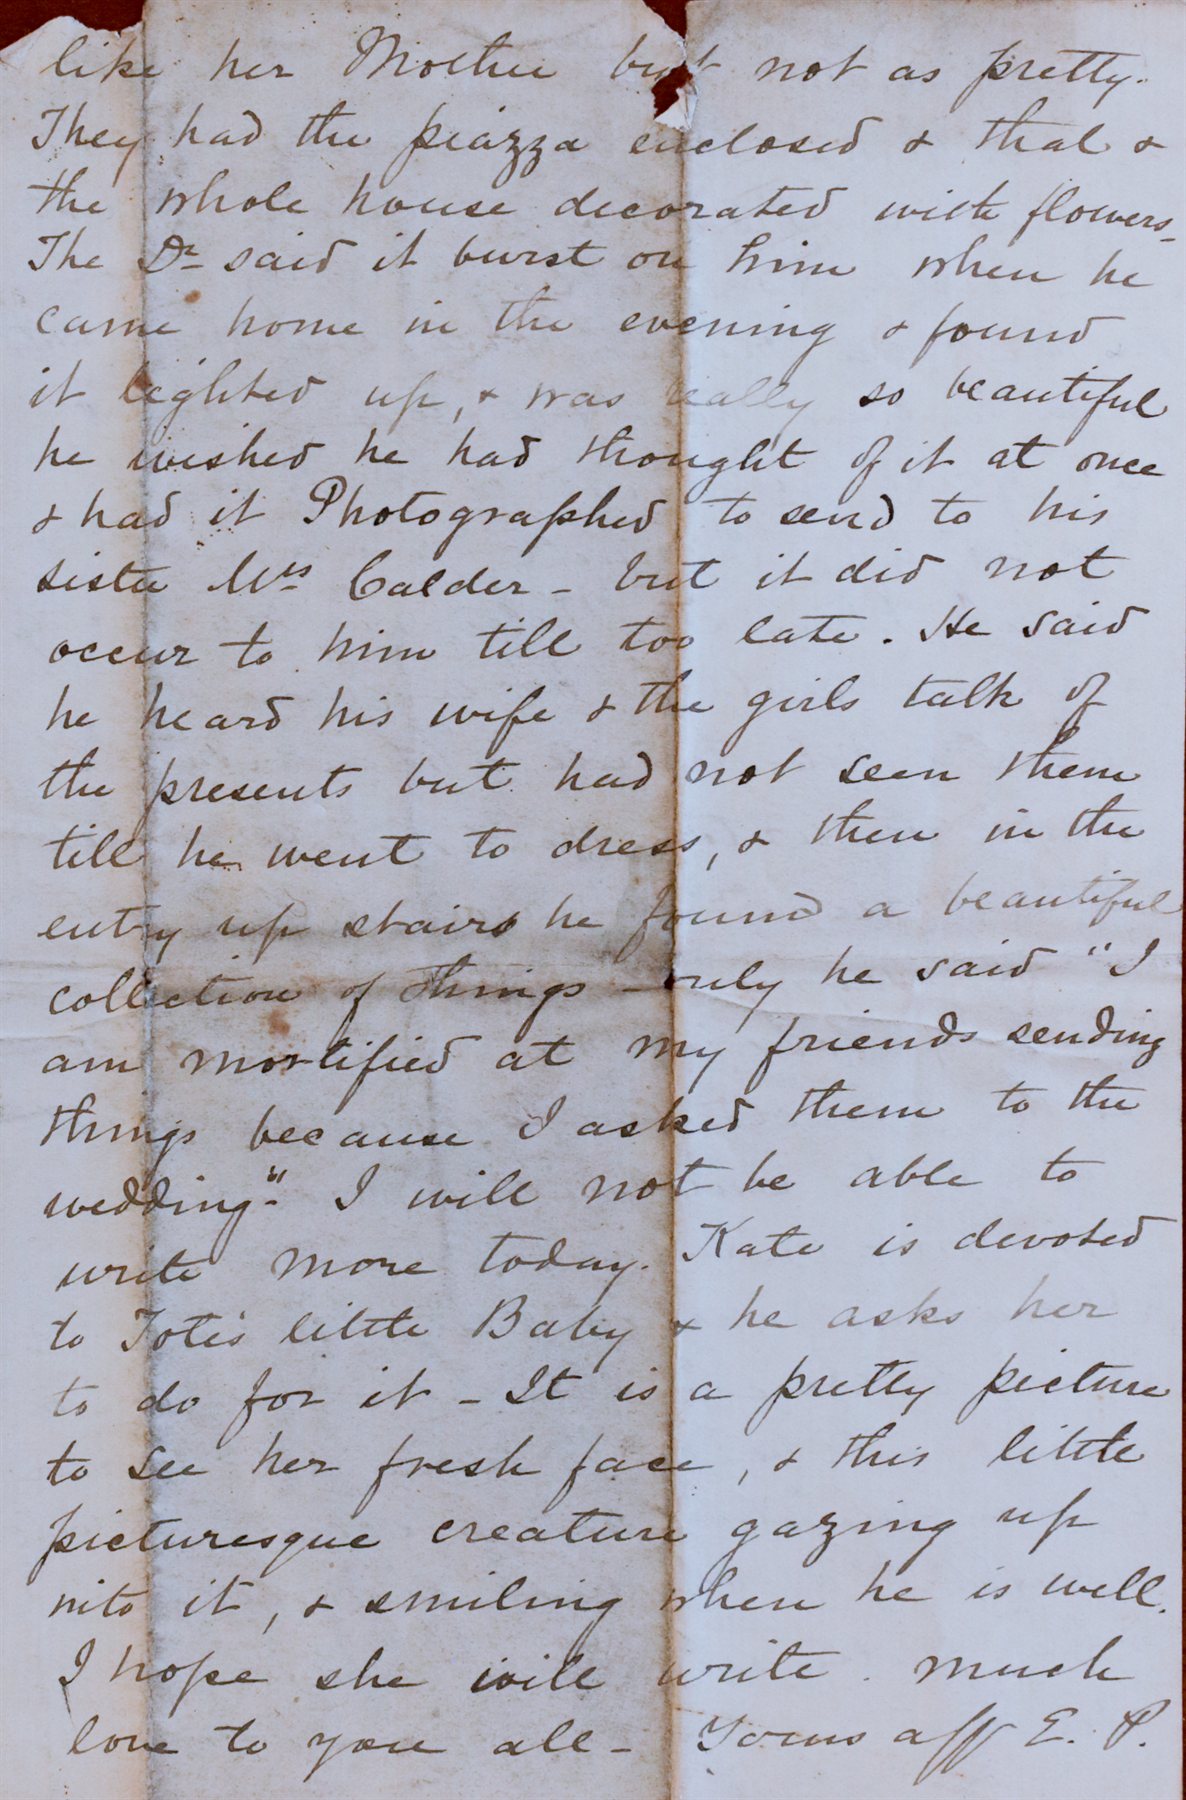 like her Mother but not as pretty.
They had the piazza enclosed & that &
the whole house decorated with flowers_
The Dr said it burst on him when he
came home in the evening & found
it lighted up, & was really so beautiful
he wished he had thought of it at once
& had it Photographed to send to his
sister Mrs Calder - but it did not
occur to him till too late. He said
he heard his wife & the girls talk of
the presents but had not seen them
till he went to dress, & then in the
entry up stairs he found a beautiful
collection of things - only he said "I
am mortified at my friends sending
things because I asked them to the
wedding." I will not be able to
write more today. Kate is devoted
to Totis little Baby & he asks her
to do for it - It is a pretty picture
to see her fresh face, & this little
picturesque creature gazing up
into it, & smiling when he is well.
I hope she will write. much
love to you all - Yours aff E. P.